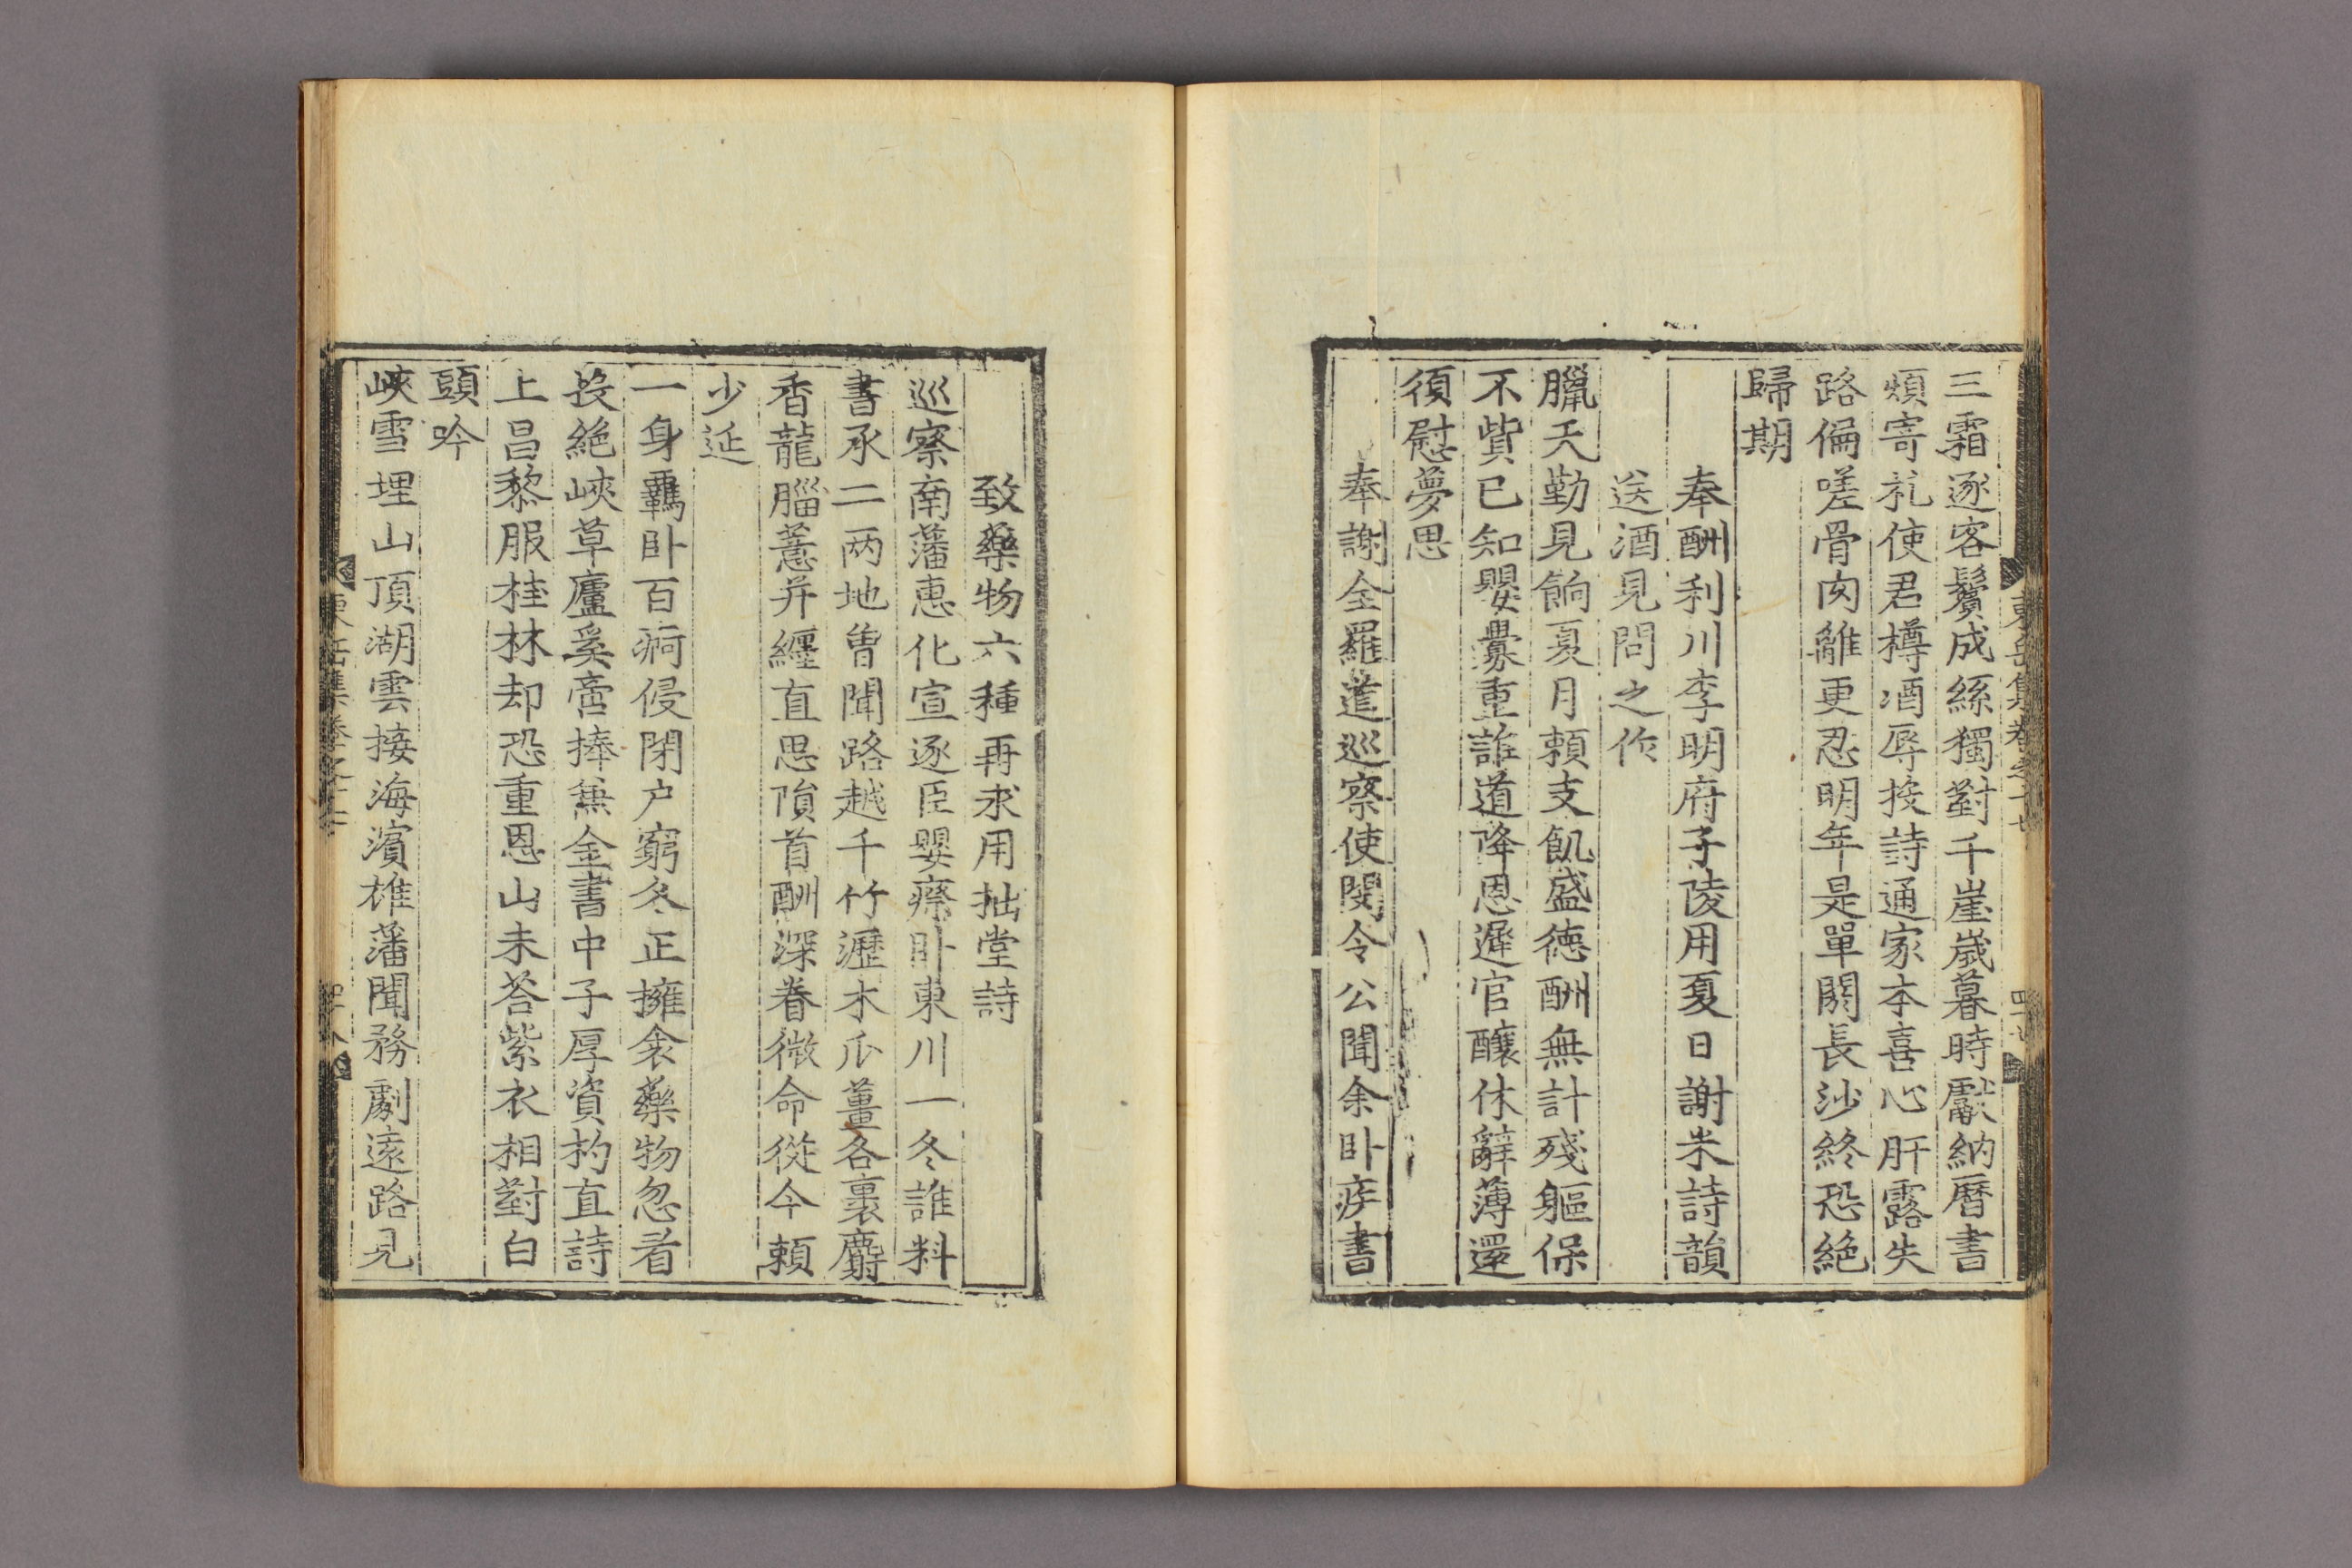 三霜逐客鬢成絲獨對千崖歲暮時獻納曆書
煩寄札使君樽酒辱投詩通家本喜心肝露失
路偏嗟骨肉離更忍明年是單閼長沙終恐絶
歸期
奉酬利川李明府子陵用夏日謝米詩韻
送酒見問之作
臘天勤見餉夏月頼支飢盛德酬無計殘軀保
不貲已知嬰釁重誰道降恩遲官釀休辭薄還
須慰夢思
奉謝全羅道巡察使閔令公聞余卧疾書
致藥物六種再求用拙堂詩
巡察南藩惠化宣逐臣嬰瘵卧東川一冬誰料
書承二両地曽聞路越千竹瀝木瓜薑各裹麝
香龍腦薏并纒直思隕首酬深眷微命從今頼
少延
一身羈卧百痾侵閉户窮冬正擁衾藥物忽看
投絶峽草廬奚啻捧兼金書中子厚資杓直詩
上昌黎服桂林却恐重恩山未荅紫衣相對白
頭吟
峽雪埋山頂湖雲接海濱雄藩聞務劇逺路見